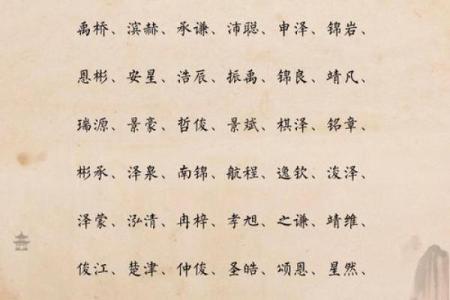 禹桥、滨赫、承谦、沛聪、申泽、锦岩、
恩彬、安星、浩辰、振禹、锦良、靖凡、
瑞源、景豪、哲俊、景斌、棋泽、铭章、
彬承、泽泉、南锦、航程、逸钦、浚泽、
泽蒙、泓清、冉梓、孝旭、之谦、靖维、
俊江、楚津、仲俊、圣皓、颂恩、星然、